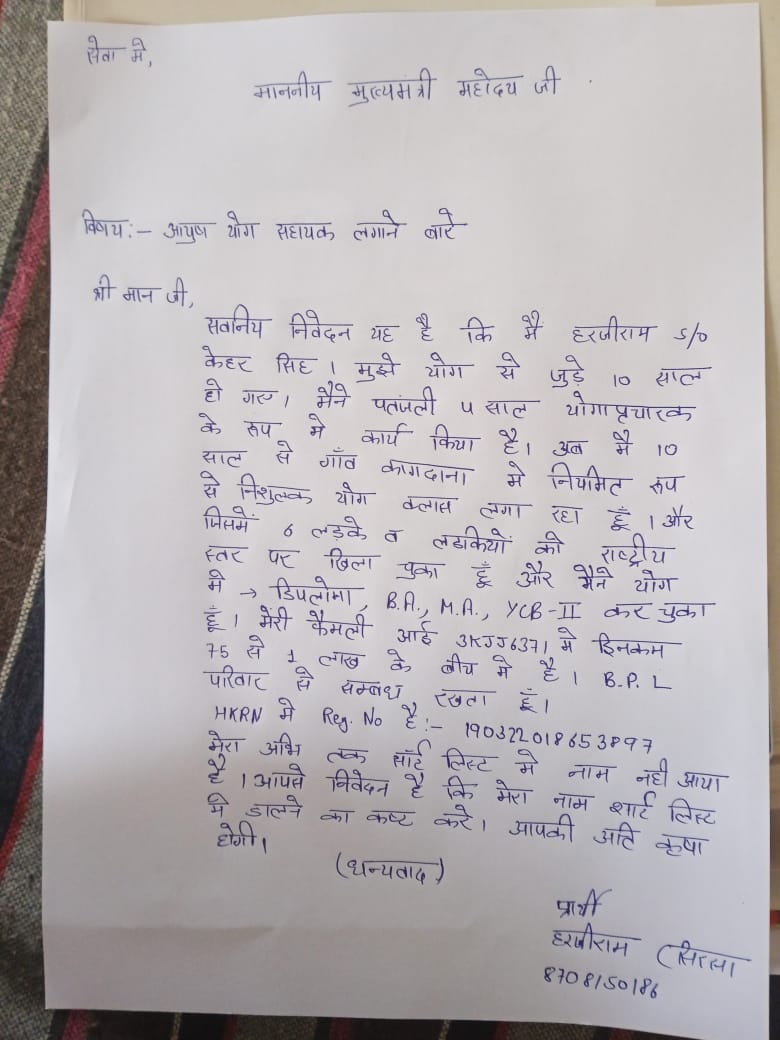 सेवा मे,
माननीय मुख्यमंत्री महोदय जी
विषय:- आयुष योग सहायक लगाने बारे
श्री मान जी,
सवनिय निवेदन यह है कि मै हरजीराम S/O
केहर सिह । मुझे योग से जुड़े 10 साल
हो गए । मैने पतंजली 4 साल योगा प्रचारक
के रूप मे कार्य किया है। अब मै 10
साल से गाँव कागदाना मे नियमित रूप
से निशुल्क योग क्लास लगा रहा हूँ । और
जिसमें 6 लड़के व लडकियों को राष्ट्रीय
स्तर पर खिला चुका हूँ और मैने योग
मे → डिपलोमा, B.A., M.A., YCB-II कर चुका
हूँ। मेरी फैमली आई 3KJJ6371 मे इनकम
75 से 1 लाख के बीच मे है । B.P.L
परिवार से सम्बध रखता हूँ।
HKRN मे Reg. No है:- 190322018653897
मेरा अभि तक सॉर्ट लिस्ट मे नाम नही आया
है । आपसे निवेदन है कि मेरा नाम शार्ट लिस्ट
मे डालने का कष्ट करे। आपकी अति कृषा
होगी।
(धन्यवाद)
प्रार्थी
हरजीराम (सिरसा
8708150186